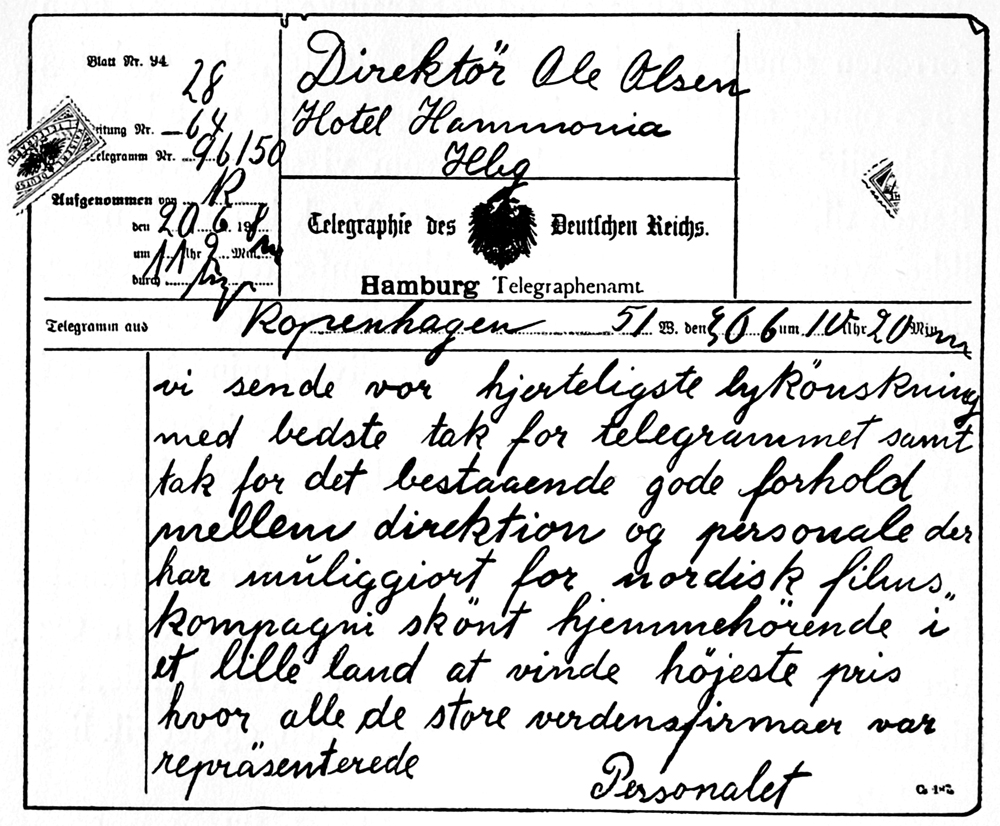 Blatt Nr. 94.
28
Leitung Nr. 64
Telegramm Nr. 96/150
Direktör Ole Olsen
Hotel Hammonia
Hbg
Aufgenommen von R
den 20/6 190 8
um 11 Uhr 2 Min.
durch
Telegraphie des Deutschen Reichs.
Hamburg Telegraphenamt.
Telegramm aus Kopenhagen 51 W. den 20 6 um 10 Uhr 20 Min. m
vi sende vor hjerteligste lykönskning
med bedste tak for telegrammet samt
tak for det bestaaende gode forhold
mellem direktion og personale der
har muliggiort for nordisk films„
kompagni skönt hjemmehörende i
et lille land at vinde höjeste pris
hvor alle de store verdensfirmaer var
repräsenterede
Personalet